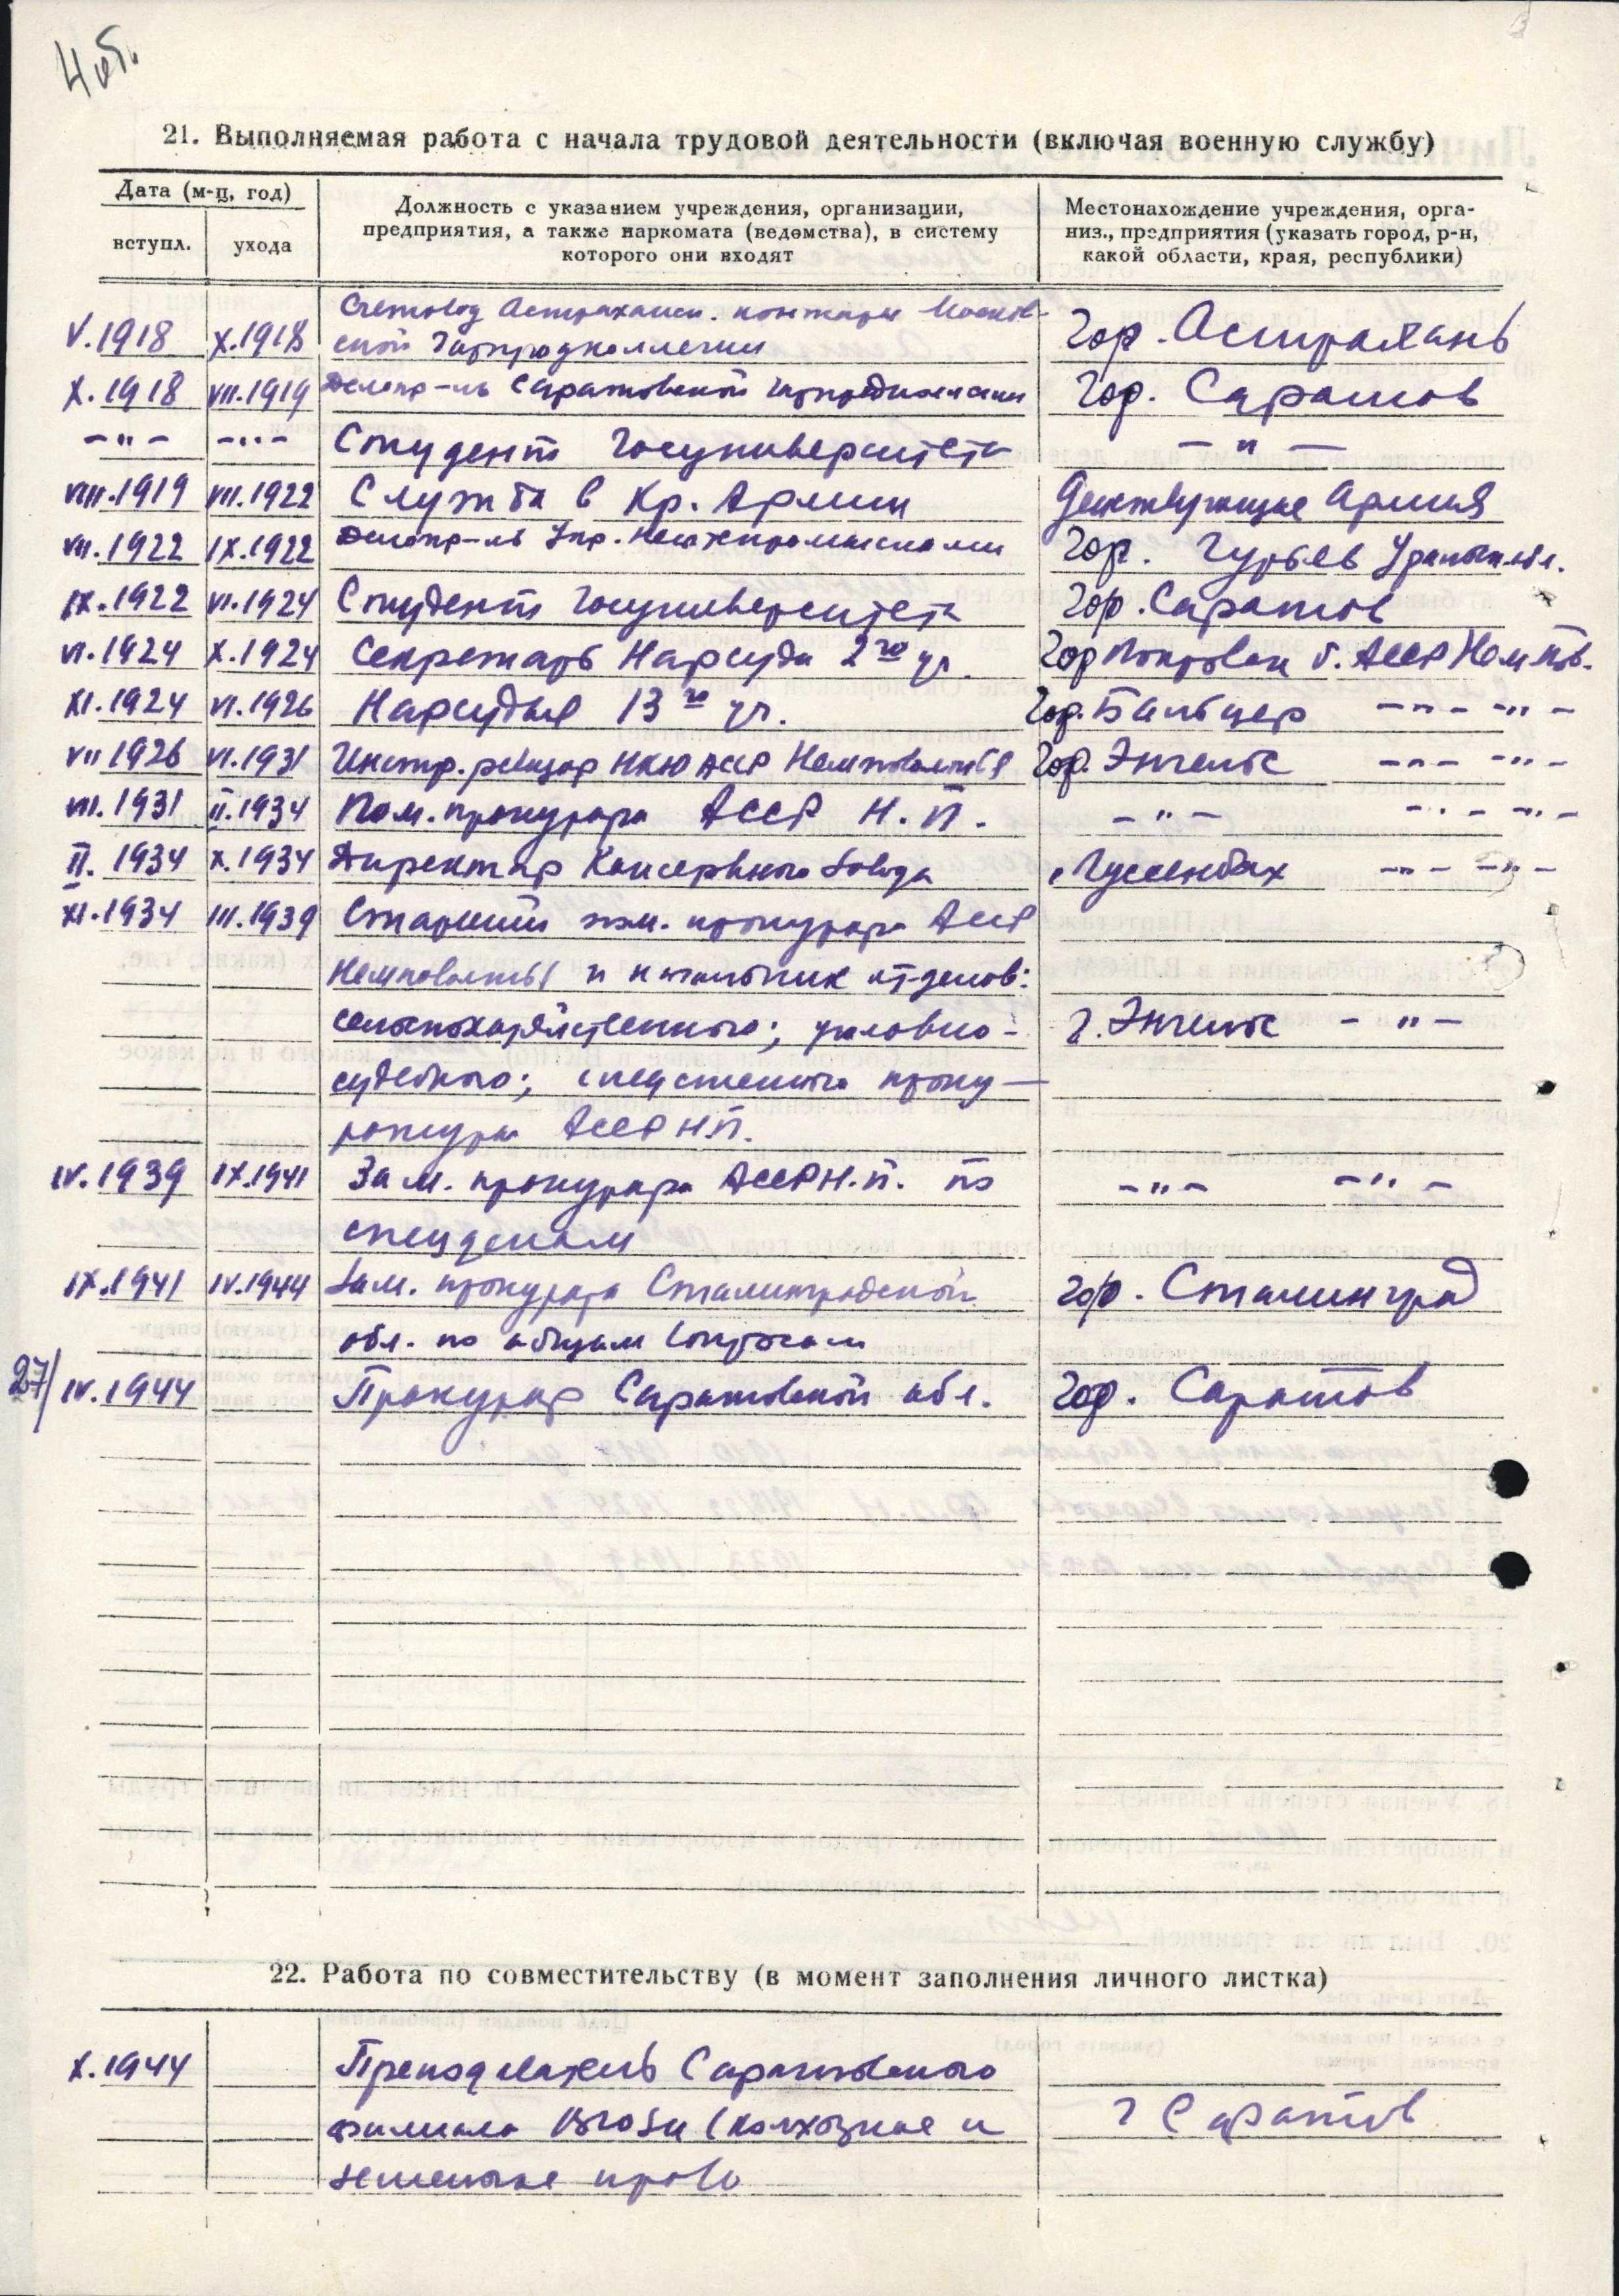 4 об.
21. Выполняемая работа с начала трудовой деятельности (включая военную службу)
Дата (м-ц, год)
вступл.
ухода
Должность с указанием учреждения, организации,
предприятия, а также наркомата (ведомства), в систему
которого они входят
Местонахождение учреждения, орга-
низ., предприятия (указать город, р-н,
какой области, края, республики)
V.1918 X.1918 Счетовод Астраханск. конторы Москов-
ской Горпродколлегии Гор. Астрахань
X.1918 VII.1919 Делопр-ль Саратовской Гор. Саратов
-"- -"- Студент Госуниверситета -"-
VIII.1919 VII.1922 Служба в Кр. Армии Действующая армия
VII.1922 IX.1922 Делопр-ль Упр. Нефтепромыслами Гор. Гурьев Уральск. обл.
IX.1922 VI.1924 Студент Госуниверситета Гор. Саратов
VI.1924 X.1924 Секретарь Нарсуда 2го уч. Гор Покровск б. АССР Нем. Пов.
XI.1924 VI.1926 Нарсудья 13го уч. Гор. Бальцер -"- -"-
VII 1926 VI.1931 Инстр. ревизор НКЮ АССР Немповолжья Гор. Энгельс -"- -"-
VII.1931 II.1934 Пом. прокурора АССР Н.П. -"- -"- -"-
II.1934 X.1934 Директор Консервного Завода с. Гуссенбах -"- -"-
XI.1934 III.1939 Старший пом. прокурора АССР
Немповолжья и начальник отделов:
сельскохозяйственного; уголовно- г. Энгельс -"-
судебного; следственного проку-
ратуры АССР Н.П.
IV.1939 IX.1941 Зам. прокурора АССР Н.П. по -"- -"-
спецделам
IX.1941 IV.1944 Зам. прокурора Сталинградской гор. Сталинград
обл. по общим вопросам
27/IV.1944 Прокурор Саратовской обл. Гор. Саратов
22. Работа по совместительству (в момент заполнения личного листка)
X.1944 Преподаватель Саратовского
филиала ВЮЗИ (колхозное и г Саратов
земельное право